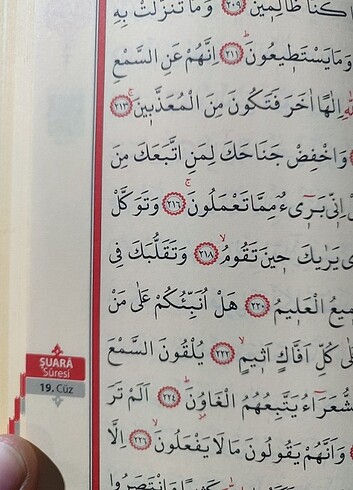 كُنَّا ظَالِمِينَ ﴿٢٠٩﴾ وَمَا تَنَزَّلَتْ بِهِ
وَمَا يَسْتَطِيعُونَ ﴿٢١١﴾ اِنَّهُمْ عَنِ السَّمْعِ
اِلٰهًا اٰخَرَ فَتَكُونَ مِنَ الْمُعَذَّبِينَ ﴿٢١٣﴾
وَاخْفِضْ جَنَاحَكَ لِمَنِ اتَّبَعَكَ مِنَ
اِنِّي بَرِيءٌ مِمَّا تَعْمَلُونَ ﴿٢١٦﴾ وَتَوَكَّلْ
يَرٰيكَ حِينَ تَقُومُ ﴿٢١٨﴾ وَتَقَلُّبَكَ فِي
الْعَلِيمُ ﴿٢٢٠﴾ هَلْ اُنَبِّئُكُمْ عَلٰى مَنْ
عَلٰى كُلِّ اَفَّاكٍ اَثِيمٍ ﴿٢٢٢﴾ يُلْقُونَ السَّمْعَ
ŞUARÂ
Sûresi
19. Cüz
الشُّعَرَاءُ يَتَّبِعُهُمُ الْغَاوُنَ ﴿٢٢٤﴾ اَلَمْ تَرَ
وَاَنَّهُمْ يَقُولُونَ مَا لَا يَفْعَلُونَ ﴿٢٢٦﴾ اِلَّا
وَانْتَصَرُوا